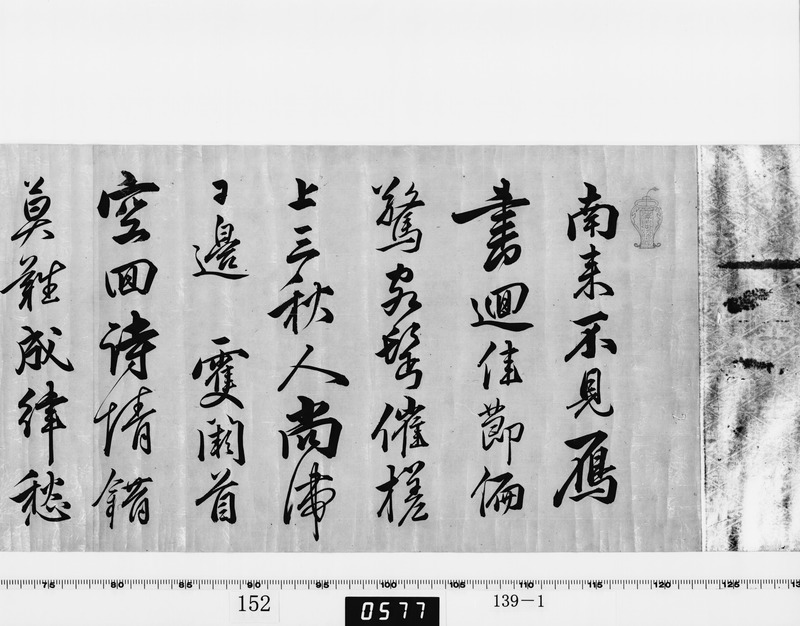 南来不見鴈
書迴佳節偏
驚客鬢催槎
上三秋人尚滯
日邊 雙闕首
空回詩情錯
莫難成律愁
75 80 85 90 95 100 105 110 115 120 125
152 0577 139-1